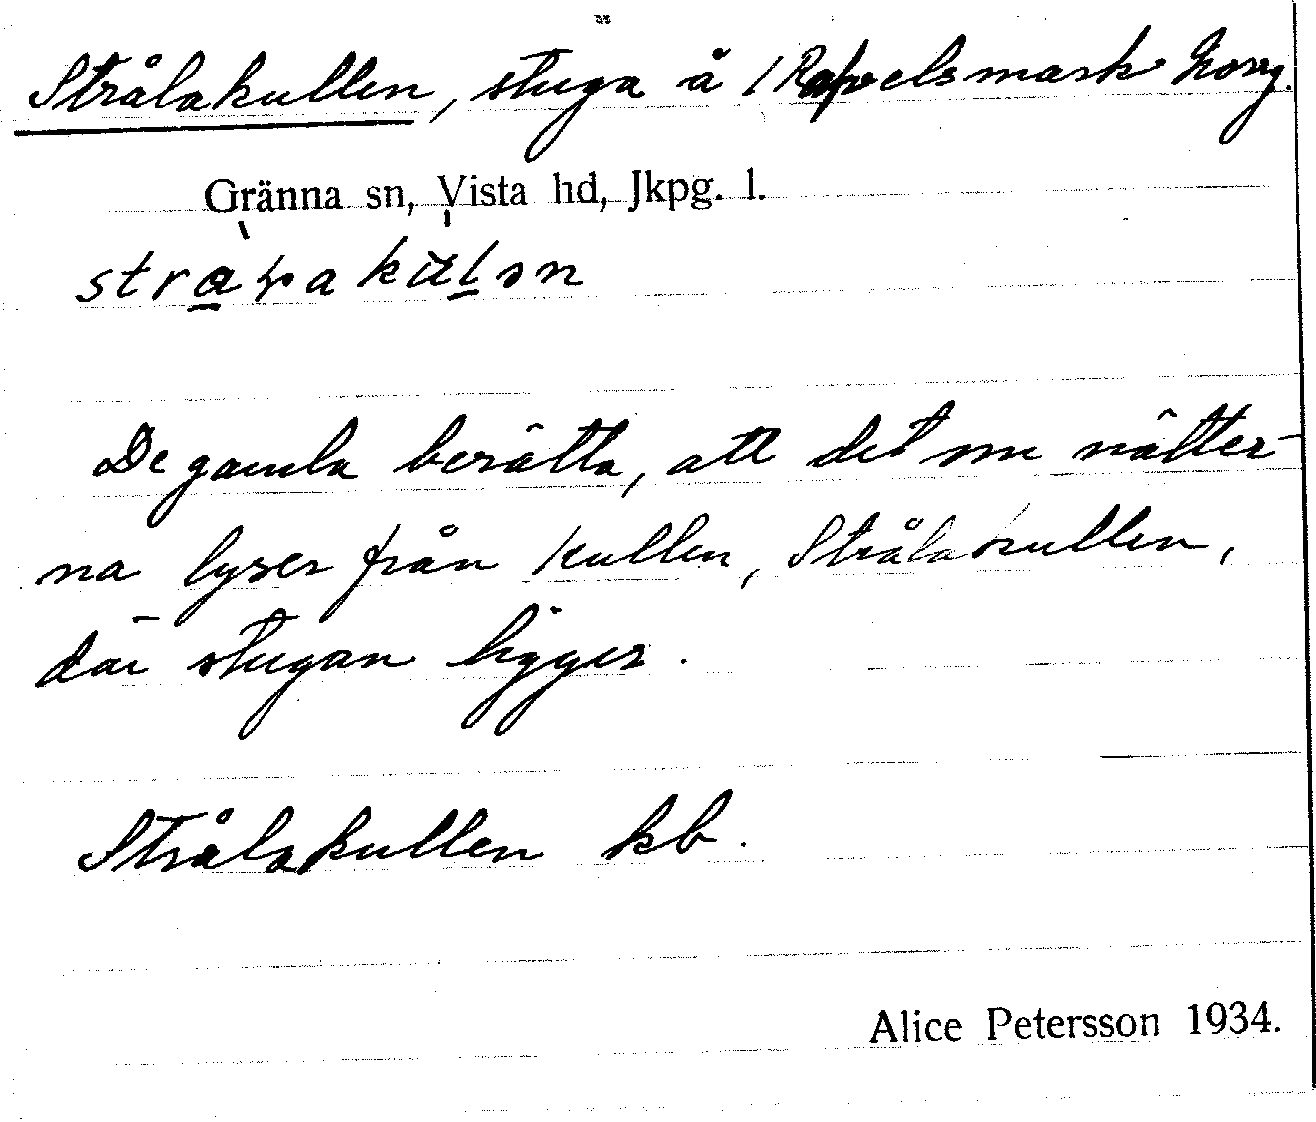 Strålakullen, stuga å Norrg.
Gränna sn, Vista hd, Jkpg. l.
De gamla berätta, att det om nätter-
na lyser från kullen, Strålakullen,
där stugan ligger.
Strålakullen kb.
Alice Petersson 1934.